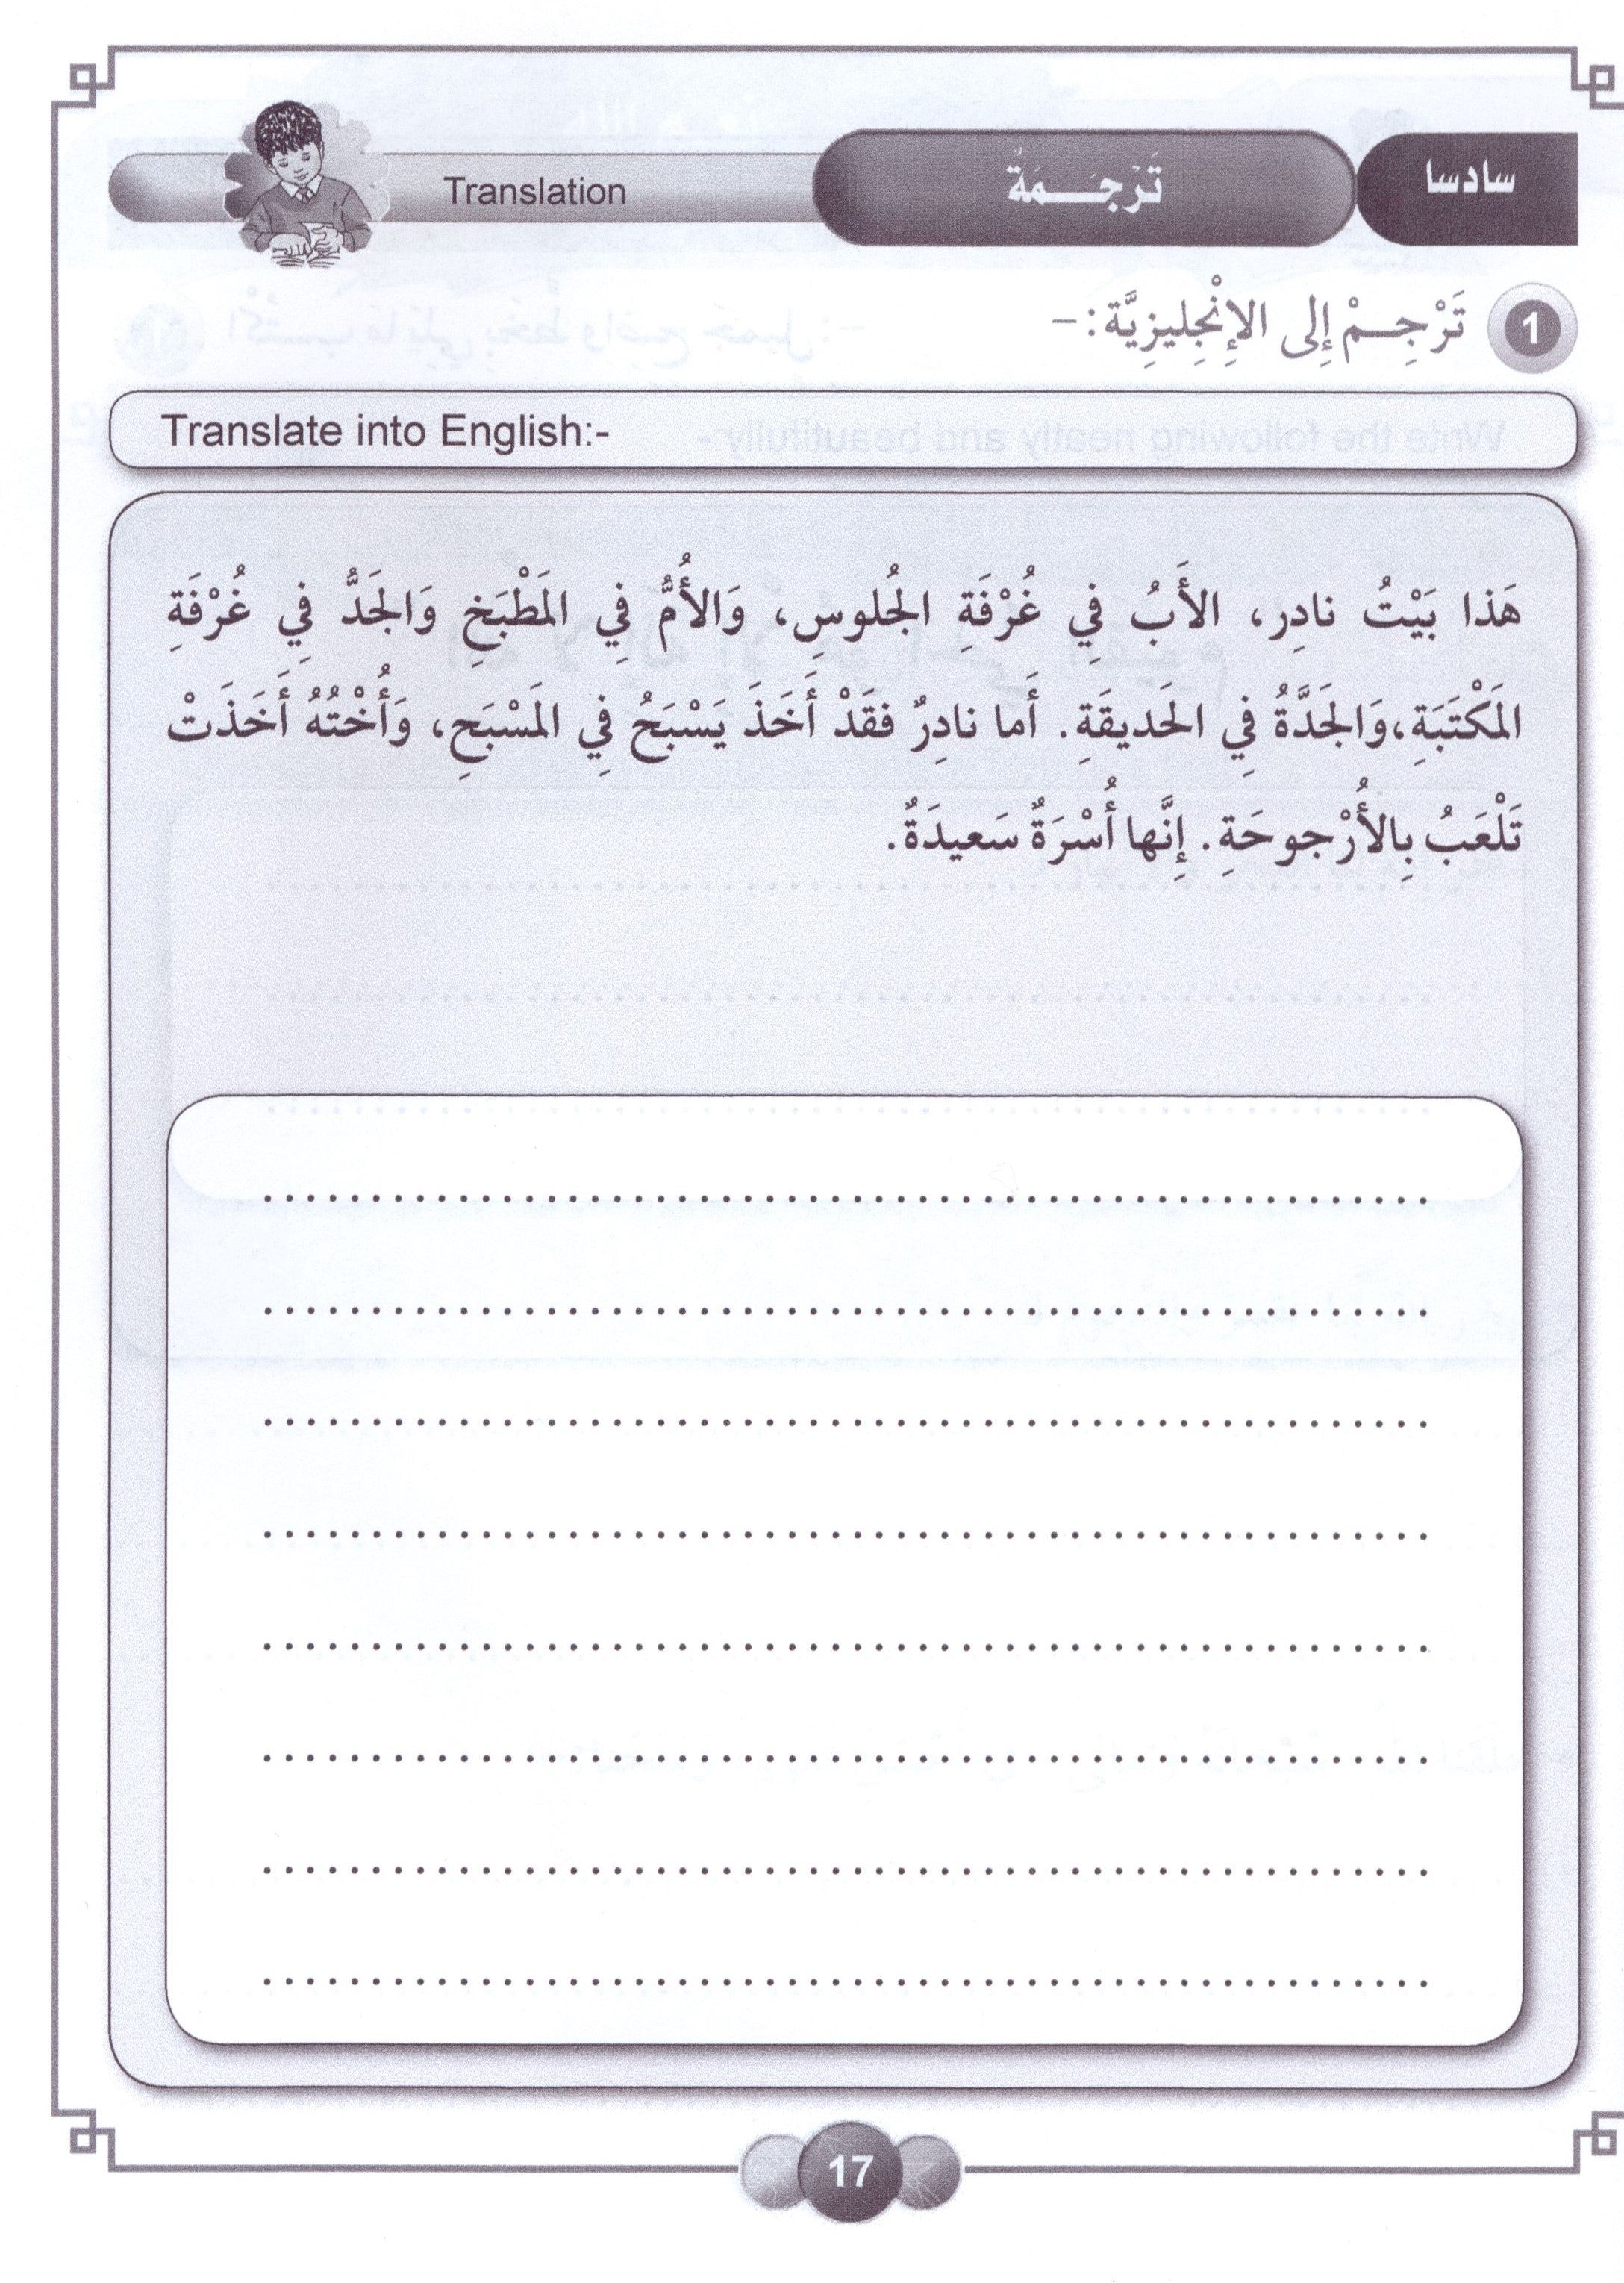 سادسا
تَرْجَـــمَةٌ
Translation
1 تَرْجِـمْ إِلى الإِنْجِليزِيَّة:-
Translate into English:-
هَذا بَيْتُ نادِر، الأَبُ فِي غُرْفَةِ الجُلوسِ، وَالأُمُّ فِي المَطْبَخِ وَالجَدُّ فِي غُرْفَةِ
المَكْتَبَةِ،وَالجَدَّةُ فِي الحَديقَةِ. أَما نادِرٌ فقَدْ أَخَذَ يَسْبَحُ فِي المَسْبَحِ، وَأُخْتُهُ أَخَذَتْ
تَلْعَبُ بِالأُرْجوحَةِ. إِنَّها أُسْرَةٌ سَعيدَةٌ.
17